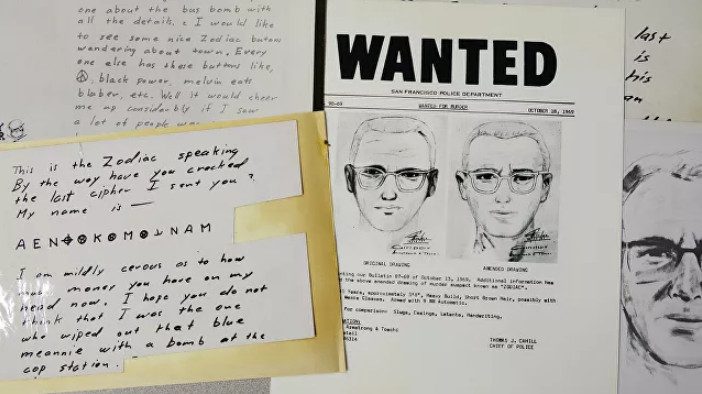 one about the bus bomb with
all the details. I would like
to see some nice Zodiac butons
wandering about town. Every
one else has these buttons like,
☮, black power, melvin eats
bluber, etc. Well it would cheer
me up considerbly if I saw
a lot of people
This is the Zodiac speaking
By the way have you cracked
the last cipher I sent you?
My name is —
AEN⌖⊗K⊗M⊗⅃NAM
I am mildly cerous as to how
much money you have on my
head now. I hope you do not
think that I was the one
who wiped out that blue
meannie with a bomb at the
cop station.
WANTED
SAN FRANCISCO POLICE DEPARTMENT
90-69 WANTED FOR MURDER OCTOBER 18, 1969
ORIGINAL DRAWING AMENDED DRAWING
our Bulletin 87-69 of October 13, 1969. Additional information has
the above amended drawing of murder suspect known as "ZODIAC".
Years, approximately 5'8", Heavy Build, Short Brown Hair, possibly with
Glasses. Armed with 9 MM Automatic.
for comparison: Slugs, Casings, Latents, Handwriting.
Armstrong & Toschi
THOMAS J. CAHILL
CHIEF OF POLICE
last
is
his
an